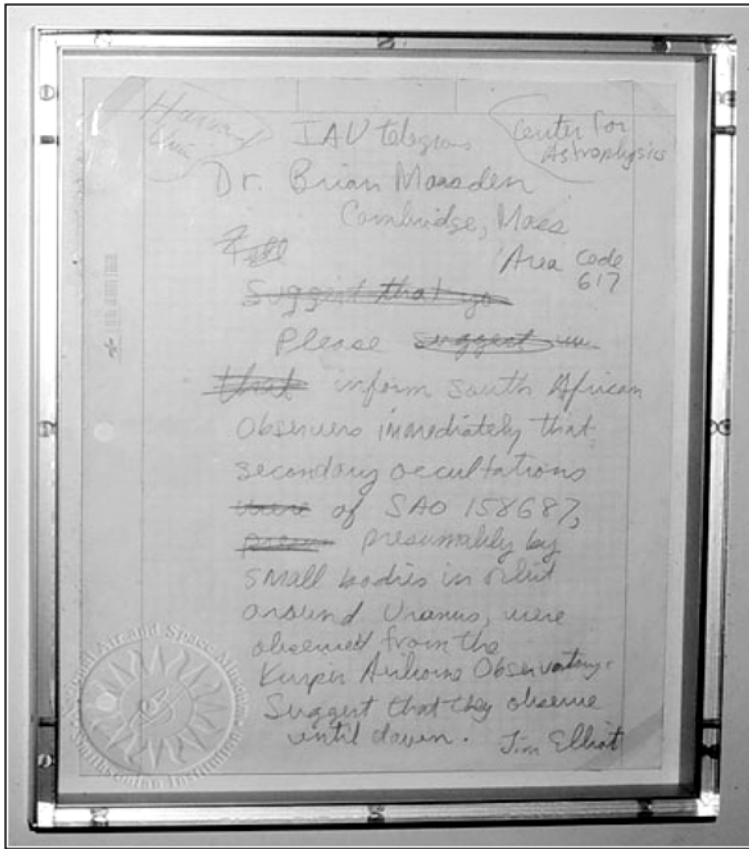 Harvard
Univ.
IAU telegram
Center for
Astrophysics
Dr. Brian Marsden
Cambridge, Mass
Area Code
617
Tell
Suggest that yo
Please suggest
that inform South African
Observers immediately that
secondary occultations
were of SAO 158687,
presum presumably by
small bodies in orbit
around Uranus, were
observed from the
Kuiper Airborne Observatory.
Suggest that they observe
until dawn. Jim Elliot
National Air and Space Museum
Smithsonian Institution